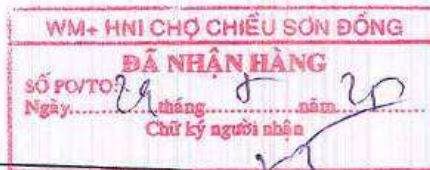 WM+ HNI CHỢ CHIỀU SƠN ĐỒNG
ĐÃ NHẬN HÀNG
SỐ PO/TO:
Ngày......tháng......năm......
Chữ ký người nhận